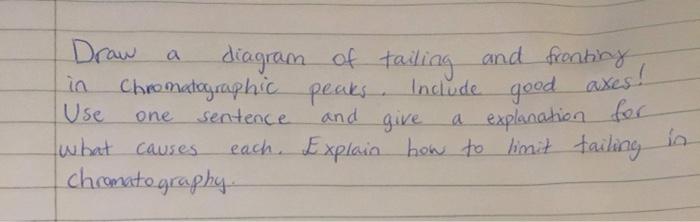 Draw a diagram of tailing and fronting
in Chromatographic peaks. Include good axes!
Use one sentence and give a explanation for
what causes each. Explain how to limit tailing in
chromatography.